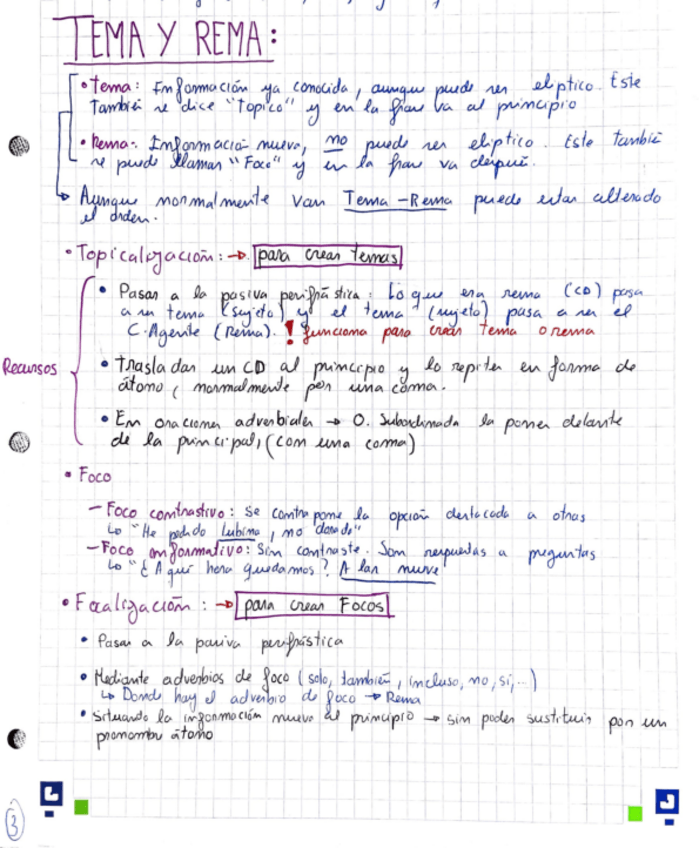 TEMA Y REMA:
• Tema: Información ya conocida, aunque puede ser elíptico. Este
También se dice "topico" y en la frase va al principio
• Rema: Información nueva, no puede ser eliptico. Este también
se puede llamar "Foco" y en la frase va después.
Aunque normalmente van Tema - Rema puede estar alterado
el orden.
• Topicalización: → para crear temas
Recursos
• Pasar a la pasiva perifrástica: Lo que era rema (CD) pasa
a ser tema (sujeto) y el tema (sujeto) pasa a ser el
C. Agente (Rema). ! funciona para crear tema o rema
• Trasladar un CD al principio y lo repiten en forma de
átomo, normalmente pon una coma.
• En oraciones adverbiales → O. Subordinada la ponen delante
de la principal, (con una coma)
• Foco
- Foco contrastivo: Se contrapone la opción destacada a otras
↳ "He pedido lubina, no dorada"
- Foco informativo: Sin contraste. Son respuestas a preguntas
↳ "¿A qué hora quedamos? A las nueve
• Focalización: → para crear Focos
• Pasar a la pasiva perifrástica
• Mediante adverbios de foco (solo, también, incluso, no, sí,...)
↳ Donde hay el adverbio de foco → Rema
• Situando la información nueva al principio → sin poder sustituir por un
pronombre átono
3